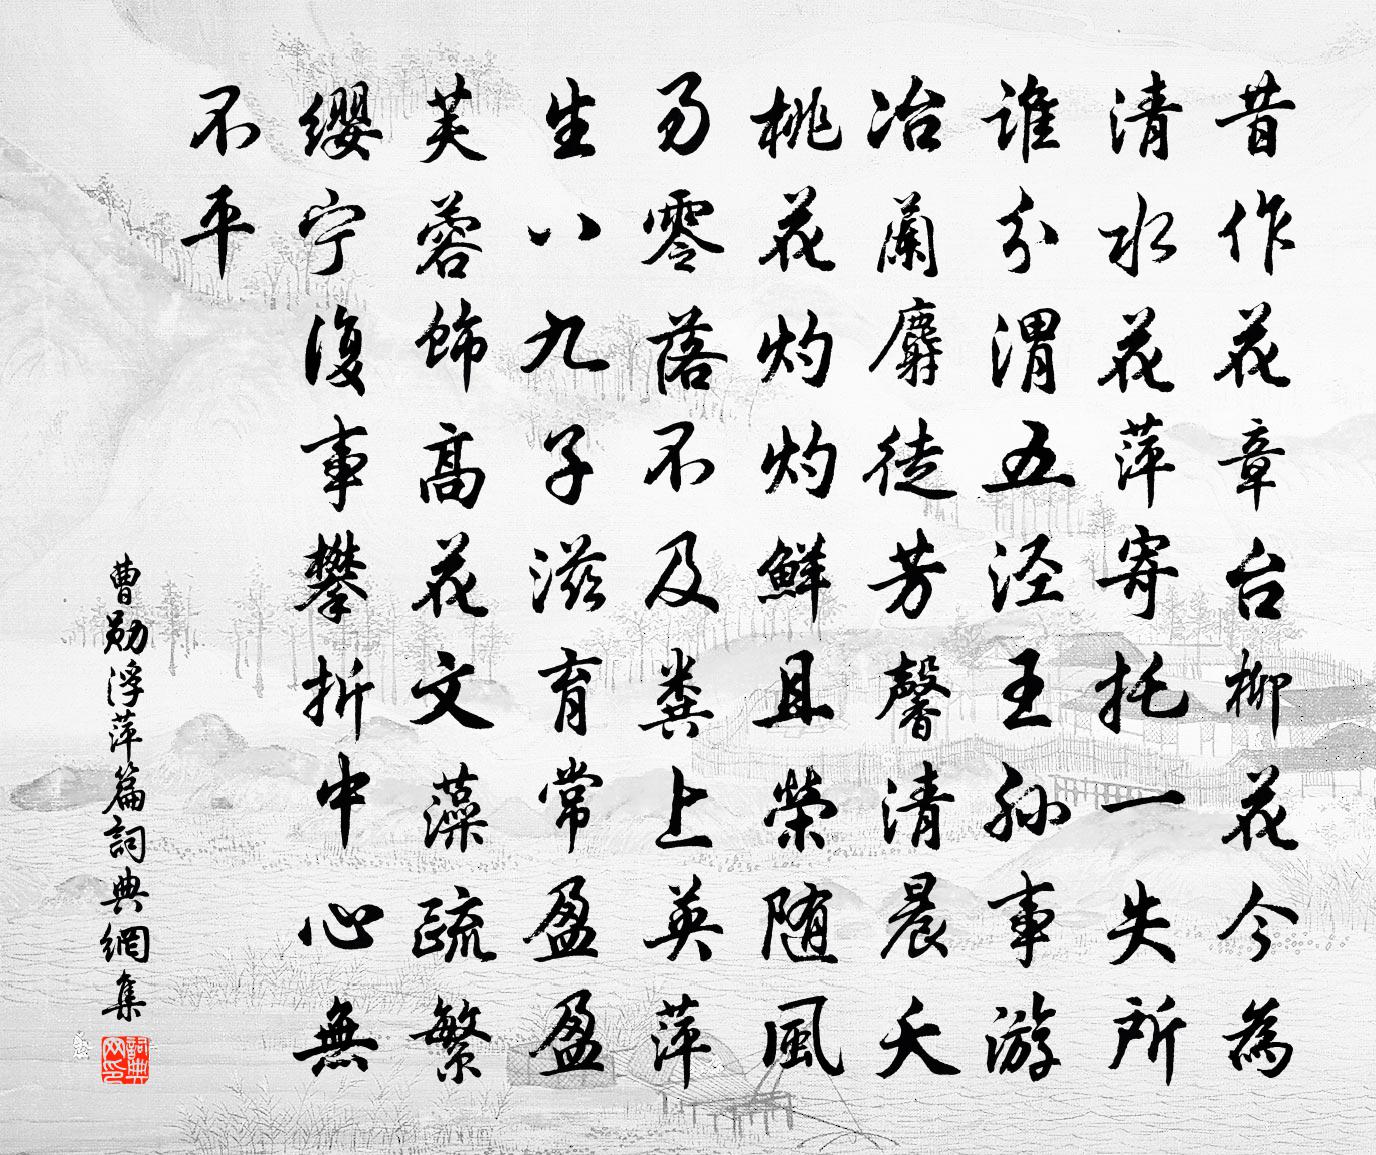 昔作花章台柳花今為
清水花萍寄托一失所
谁分渭五泾王孙事游
冶蘭麝徒芳馨清晨夭
桃花灼灼鮮且榮随風
易零落不及粪上英萍
生八九子滋育常盈盈
芙蓉飾高花文藻疏繁
缨宁復事攀折中心無
不平
曹勛浮萍篇詞典網集
詞典网印